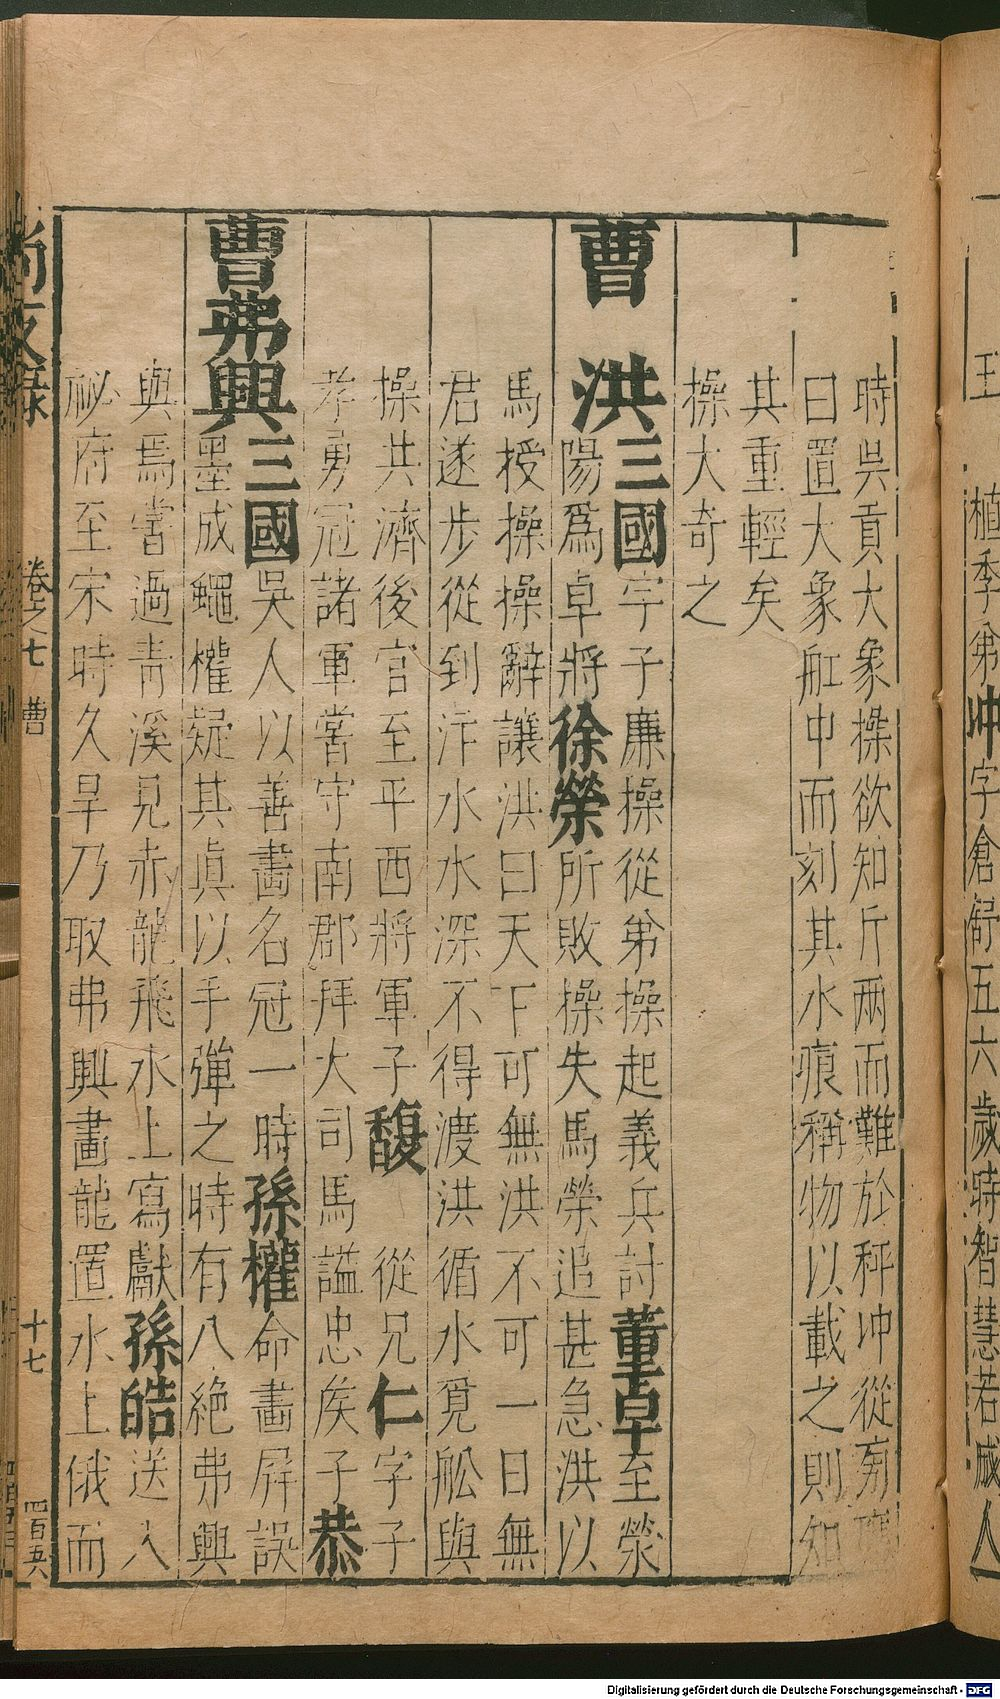 王 植季弟冲字倉舒五六歲時智慧若成人
時吳貢大象操欲知斤兩而難於秤冲從旁
曰置大象舡中而刻其水痕稱物以載之則知
其重輕矣
操大奇之
曹 洪三國字子廉操從弟操起義兵討董卓至滎
陽爲卓將徐榮所敗操失馬榮追甚急洪以
馬授操操辭讓洪曰天下可無洪不可一日無
君遂步從到汴水水深不得渡洪循水覓舩與
操共濟後官至平西將軍子馥 從兄仁字子
孝勇冠諸軍嘗守南郡拜大司馬謚忠矦子恭
曹弗興三國吳人以善畵名冠一時孫權命畵屏誤
墨成蠅權疑其眞以手彈之時有八絶弗興
與焉嘗過靑溪見赤龍飛水上寫獻孫皓送入
祕府至宋時久旱乃取弗興畵龍置水上俄而
尚友錄 卷之七 曹 十七 四百五八
Digitalisierung gefördert durch die Deutsche Forschungsgemeinschaft - DFG